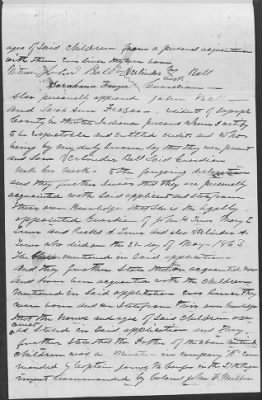 ages of Said children from a personal acquaintance
with them ever since they were born
Witness John Bell Verlinder her mark Bell
Sarahann Guardian
Also personally appeared John Bell
and Sarah Ann resident of
County in the State Indiana persons whom I certify
to be respectable and entitled credit and who
being by me duly sworn say that they were present
and saw Verlinder Bell Said Guardian
make her mark to the foregoing declaration
and they further swear that they are personally
acquainted with the said applicant and state from
their own knowledge that she is the legally
appointed Guardian of John H. Mary E
and Rachel A. and also Verlinder A.
who died on the 22 day of May 1863
The mentioned in said application
And they further state that acquainted
and have been acquainted with the children
mentioned in Said application ever since they
were born and we state from our own knowledge
that the names and ages of Said children are
as stated in said application and they
further state that the Father of the above mentioned
children was a in company K
manded by Captain in the 29 Regi
ment commanded by Colonel John F. Miller